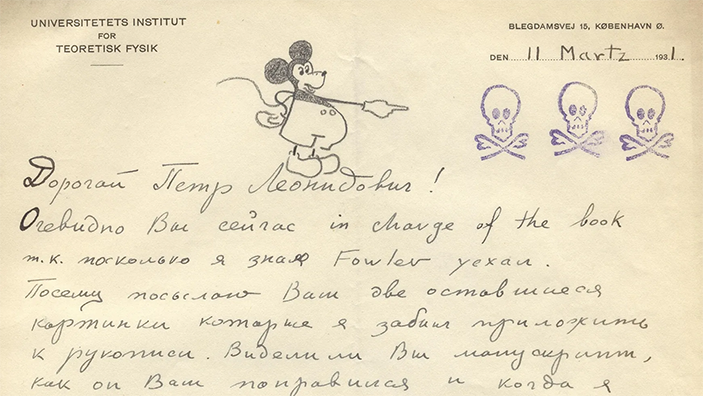 UNIVERSITETETS INSTITUT
FOR
TEORETISK FYSIK
BLEGDAMSVEJ 15, KØBENHAVN Ø.
DEN 11 Martz 1931.
Дорогай Петр Леонидович!
Очевидно Вы сейчас in charge of the book
т.к. посколько я знаю Fowler уехал.
Посему посылаю Вам две оставшиеся
картинки которые я забыл приложить
к рукописи. Видели ли Вы манускрипт,
как он Вам понравился и когда я